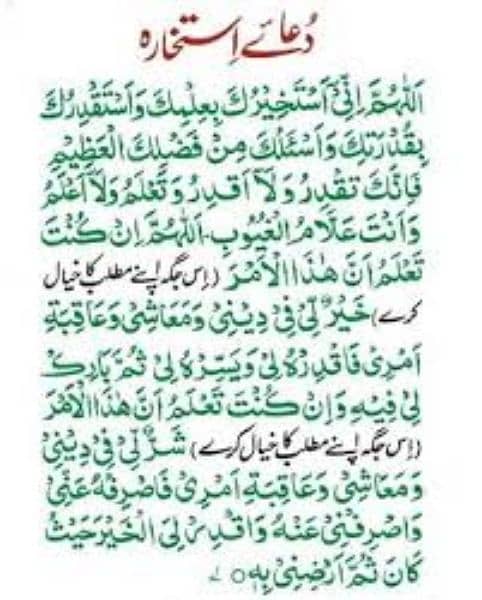 دُعائے اِستخارہ
اَللّٰهُمَّ اِنِّیْ اَسْتَخِیْرُكَ بِعِلْمِكَ وَاَسْتَقْدِرُكَ
بِقُدْرَتِكَ وَاَسْئَلُكَ مِنْ فَضْلِكَ الْعَظِیْمِ
فَاِنَّكَ تَقْدِرُ وَلَآ اَقْدِرُ وَتَعْلَمُ وَلَآ اَعْلَمُ
وَاَنْتَ عَلَّامُ الْغُیُوْبِ۔ اَللّٰهُمَّ اِنْ كُنْتَ
تَعْلَمُ اَنَّ هٰذَا الْاَمْرَ (اِس جگہ اپنے مطلب کا خیال
کرے) خَیْرٌ لِّیْ فِیْ دِیْنِیْ وَمَعَاشِیْ وَعَاقِبَةِ
اَمْرِیْ فَاقْدِرْهُ لِیْ وَیَسِّرْهُ لِیْ ثُمَّ بَارِكْ
لِیْ فِیْهِ وَاِنْ كُنْتَ تَعْلَمُ اَنَّ هٰذَا الْاَمْرَ
(اِس جگہ اپنے مطلب کا خیال کرے) شَرٌّ لِّیْ فِیْ دِیْنِیْ
وَمَعَاشِیْ وَعَاقِبَةِ اَمْرِیْ فَاصْرِفْهُ عَنِّیْ
وَاصْرِفْنِیْ عَنْهُ وَاقْدِرْ لِیَ الْخَیْرَ حَیْثُ
كَانَ ثُمَّ اَرْضِنِیْ بِهٖ ○